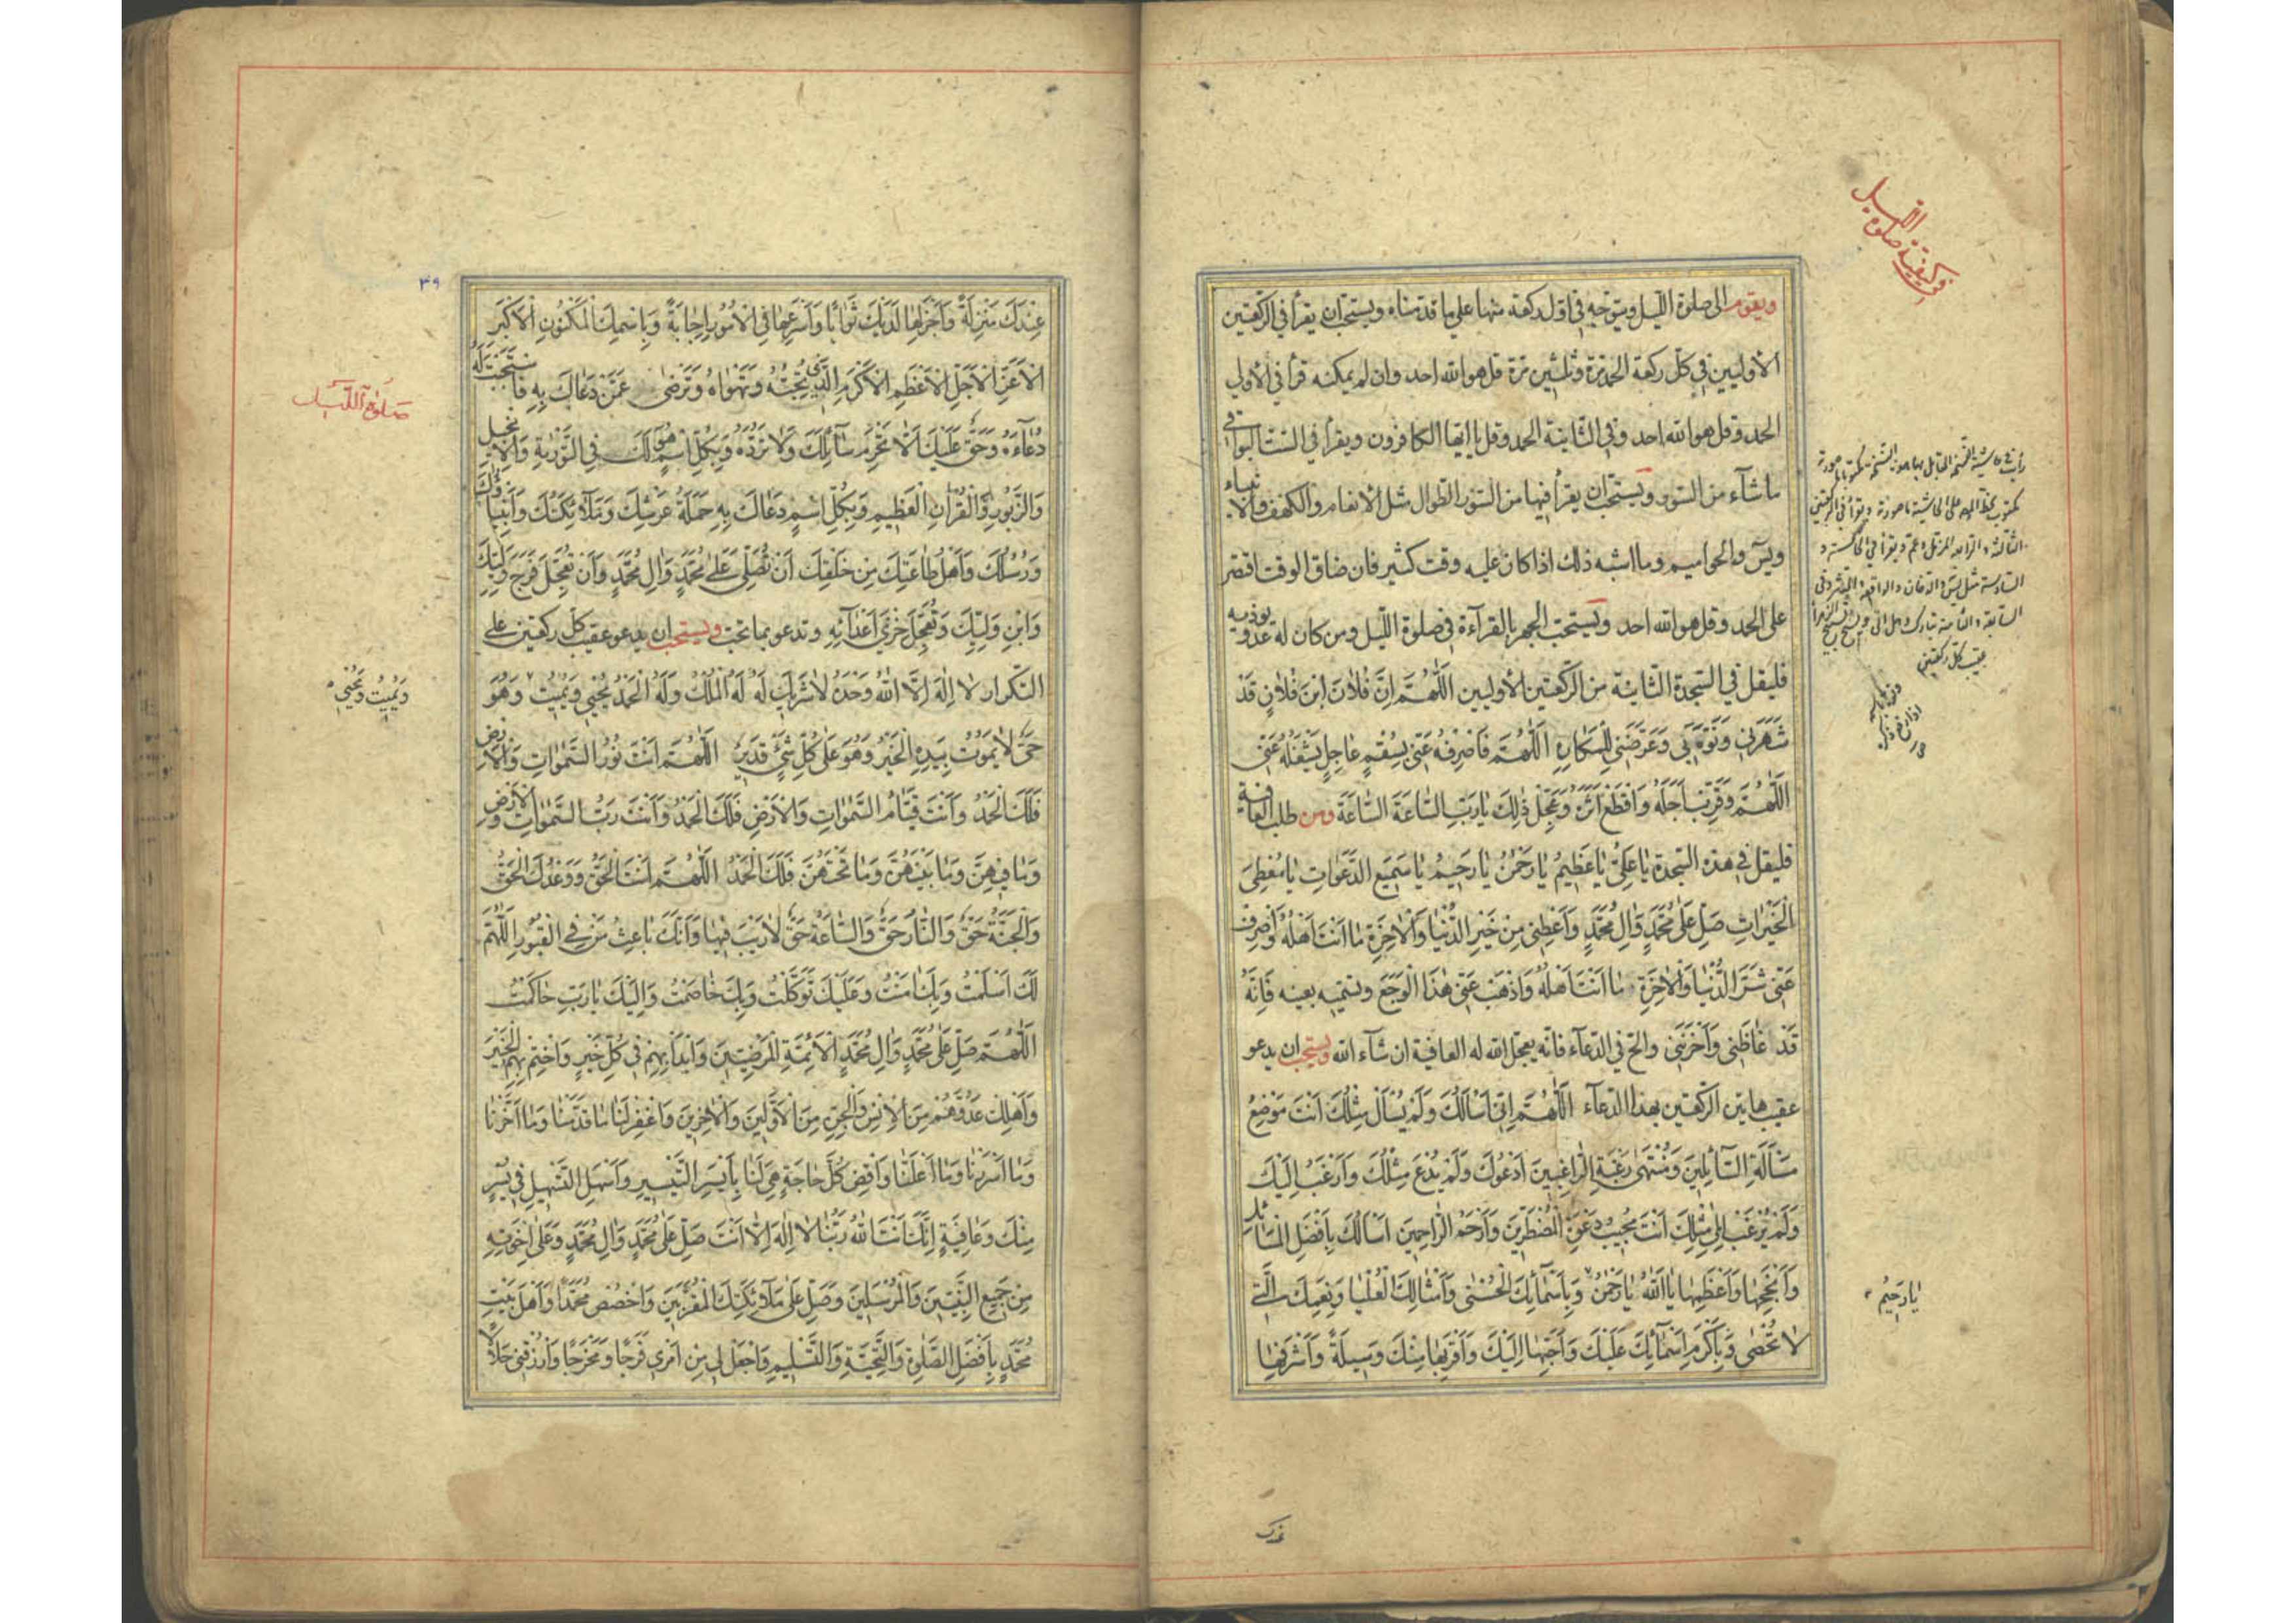 في كيفية صلوة الليل
ويقوم الى صلوة الليل ويتوجه في اول ركعة منها على ما قدمناه ويستحب ان يقرأ في الركعتين
الأوليين في كل ركعة الحمد مرة وثلثين مرة قل هو الله احد وان لم يمكنه قرأ في الأولى
الحمد وقل هو الله احد وفي الثانية الحمد وقل يا ايها الكافرون ويقرأ في الست البواقي
ما شآء من السور ويستحب ان يقرأ فيها من السور الطوال مثل الأنعام والكهف والانبياء
ويس والحواميم وما اشبه ذلك اذا كان عليه وقت كثير فان ضاق الوقت اقتصر
على الحمد وقل هو الله احد ويستحب الجهر بالقرآءة في صلوة الليل ومن كان له عدو يؤذيه
فليقل في السجدة الثانية من الركعتين الأوليين اَللّٰهُمَّ اِنَّ فُلانَ ابْنَ فُلانٍ قَدْ
شَهَرَنِي وَنَوَّهَ بِي وَعَرَّضَنِي لِلْمَكَارِهِ اَللّٰهُمَّ فَاصْرِفْهُ عَنِّي بِسُقْمٍ عَاجِلٍ يَشْغَلُهُ عَنِّي
اَللّٰهُمَّ وَقَرِّبْ اَجَلَهُ وَاقْطَعْ اَثَرَهُ وَعَجِّلْ ذٰلِكَ يَا رَبِّ السَّاعَةَ السَّاعَةَ ومن طلب العافية
فليقل في هذه السجدة يَا عَلِيُّ يَا عَظِيمُ يَا رَحْمٰنُ يَا رَحِيمُ يَا سَمِيعَ الدَّعَوَاتِ يَا مُعْطِيَ
الْخَيْرَاتِ صَلِّ عَلٰى مُحَمَّدٍ وَاٰلِ مُحَمَّدٍ وَاَعْطِنِي مِنْ خَيْرِ الدُّنْيَا وَالْاٰخِرَةِ مَا اَنْتَ اَهْلُهُ وَاصْرِفْ
عَنِّي شَرَّ الدُّنْيَا وَالْاٰخِرَةِ مَا اَنْتَ اَهْلُهُ وَاَذْهِبْ عَنِّي هٰذَا الْوَجَعَ وتسميه بعينه فَاِنَّهُ
قَدْ غَاظَنِي وَاَحْزَنَنِي والح في الدعآء فانه يعجل الله له العافية ان شآء الله ويستحب ان يدعو
عقيب هاتين الركعتين بهذا الدعآء اَللّٰهُمَّ اِنِّي اَسْأَلُكَ وَلَمْ يُسْأَلْ مِثْلُكَ اَنْتَ مَوْضِعُ
مَسْأَلَةِ السَّآئِلِينَ وَمُنْتَهٰى رَغْبَةِ الرَّاغِبِينَ اَدْعُوكَ وَلَمْ يُدْعَ مِثْلُكَ وَاَرْغَبُ اِلَيْكَ
وَلَمْ يُرْغَبْ اِلٰى مِثْلِكَ اَنْتَ مُجِيبُ دَعْوَةِ الْمُضْطَرِّينَ وَاَرْحَمُ الرَّاحِمِينَ اَسْأَلُكَ بِاَفْضَلِ الْمَسَائِلِ
وَاَنْجَحِهَا وَاَعْظَمِهَا يَا اَللّٰهُ يَا رَحْمٰنُ وَبِاَسْمَآئِكَ الْحُسْنٰى وَاَمْثَالِكَ الْعُلْيَا وَنِعَمِكَ الَّتِي
لا تُحْصٰى وَبِاَكْرَمِ اَسْمَآئِكَ عَلَيْكَ وَاَحَبِّهَا اِلَيْكَ وَاَقْرَبِهَا مِنْكَ وَسِيلَةً وَاَشْرَفِهَا
يَا رَحِيمُ
عندك
٣٩
عِنْدَكَ مَنْزِلَةً وَاَجْزَلِهَا لَدَيْكَ ثَوَابًا وَاَسْرَعِهَا فِي الْاُمُورِ اِجَابَةً وَبِاسْمِكَ الْمَكْنُونِ الْاَكْبَرِ
الْاَعَزِّ الْاَجَلِّ الْاَعْظَمِ الْاَكْرَمِ الَّذِي تُحِبُّهُ وَتَهْوَاهُ وَتَرْضٰى عَمَّنْ دَعَاكَ بِهِ فَاسْتَجَبْتَ لَهُ
دُعَآءَهُ وَحَقٌّ عَلَيْكَ اَلّا تَحْرِمَ سَآئِلَكَ وَلا تَرُدَّهُ وَبِكُلِّ اسْمٍ هُوَ لَكَ فِي التَّوْرٰيةِ وَالْاِنْجِيلِ
وَالزَّبُورِ وَالْقُرْاٰنِ الْعَظِيمِ وَبِكُلِّ اسْمٍ دَعَاكَ بِهِ حَمَلَةُ عَرْشِكَ وَمَلآئِكَتُكَ وَاَنْبِيَاؤُكَ
وَرُسُلُكَ وَاَهْلُ طَاعَتِكَ مِنْ خَلْقِكَ اَنْ تُصَلِّيَ عَلٰى مُحَمَّدٍ وَاٰلِ مُحَمَّدٍ وَاَنْ تُعَجِّلَ فَرَجَ وَلِيِّكَ
وَابْنِ وَلِيِّكَ وَتُعَجِّلَ خِزْيَ اَعْدَآئِهِ وتدعو بما تحب ويستحب ان يدعو عقيب كل ركعتين على
التكرار لا اِلٰهَ اِلَّا اللّٰهُ وَحْدَهُ لا شَرِيكَ لَهُ لَهُ الْمُلْكُ وَلَهُ الْحَمْدُ يُحْيِي وَيُمِيتُ وَهُوَ
حَيٌّ لا يَمُوتُ بِيَدِهِ الْخَيْرُ وَهُوَ عَلٰى كُلِّ شَيْءٍ قَدِيرٌ اَللّٰهُمَّ اَنْتَ نُورُ السَّمٰوَاتِ وَالْاَرْضِ
فَلَكَ الْحَمْدُ وَاَنْتَ قَيَّامُ السَّمٰوَاتِ وَالْاَرْضِ فَلَكَ الْحَمْدُ وَاَنْتَ رَبُّ السَّمٰوَاتِ وَالْاَرْضِ
وَمَا فِيهِنَّ وَمَا بَيْنَهُنَّ وَمَا تَحْتَهُنَّ فَلَكَ الْحَمْدُ اَللّٰهُمَّ اَنْتَ الْحَقُّ وَوَعْدُكَ الْحَقُّ
وَالْجَنَّةُ حَقٌّ وَالنَّارُ حَقٌّ وَالسَّاعَةُ حَقٌّ لا رَيْبَ فِيهَا وَاَنَّكَ بَاعِثُ مَنْ فِي الْقُبُورِ اَللّٰهُمَّ
لَكَ اَسْلَمْتُ وَبِكَ اٰمَنْتُ وَعَلَيْكَ تَوَكَّلْتُ وَبِكَ خَاصَمْتُ وَاِلَيْكَ يَا رَبِّ حَاكَمْتُ
اَللّٰهُمَّ صَلِّ عَلٰى مُحَمَّدٍ وَاٰلِ مُحَمَّدٍ الْاَئِمَّةِ الْمَرْضِيِّينَ وَابْدَأْ بِهِمْ فِي كُلِّ خَيْرٍ وَاخْتِمْ بِهِمُ الْخَيْرَ
وَاَهْلِكْ عَدُوَّهُمْ مِنَ الْاِنْسِ وَالْجِنِّ مِنَ الْاَوَّلِينَ وَالْاٰخِرِينَ وَاغْفِرْ لَنَا مَا قَدَّمْنَا وَمَا اَخَّرْنَا
وَمَا اَسْرَرْنَا وَمَا اَعْلَنَّا وَاقْضِ كُلَّ حَاجَةٍ هِيَ لَنَا بِاَيْسَرِ التَّيْسِيرِ وَاَسْهَلِ التَّسْهِيلِ فِي يُسْرٍ
مِنْكَ وَعَافِيَةٍ اِنَّكَ اَنْتَ اللّٰهُ رَبُّنَا لا اِلٰهَ اِلّا اَنْتَ صَلِّ عَلٰى مُحَمَّدٍ وَاٰلِ مُحَمَّدٍ وَعَلٰى اِخْوَتِهِ
مِنْ جَمِيعِ النَّبِيِّينَ وَالْمُرْسَلِينَ وَصَلِّ عَلٰى مَلآئِكَتِكَ الْمُقَرَّبِينَ وَاخْصُصْ مُحَمَّدًا وَاَهْلَ بَيْتِ
مُحَمَّدٍ بِاَفْضَلِ الصَّلٰوةِ وَالتَّحِيَّةِ وَالتَّسْلِيمِ وَاجْعَلْ لِي مِنْ اَمْرِي فَرَجًا وَمَخْرَجًا وَارْزُقْنِي حَلالًا
صَلٰوةُ اللَّيْلِ
وَيُمِيتُ وَيُحْيِي